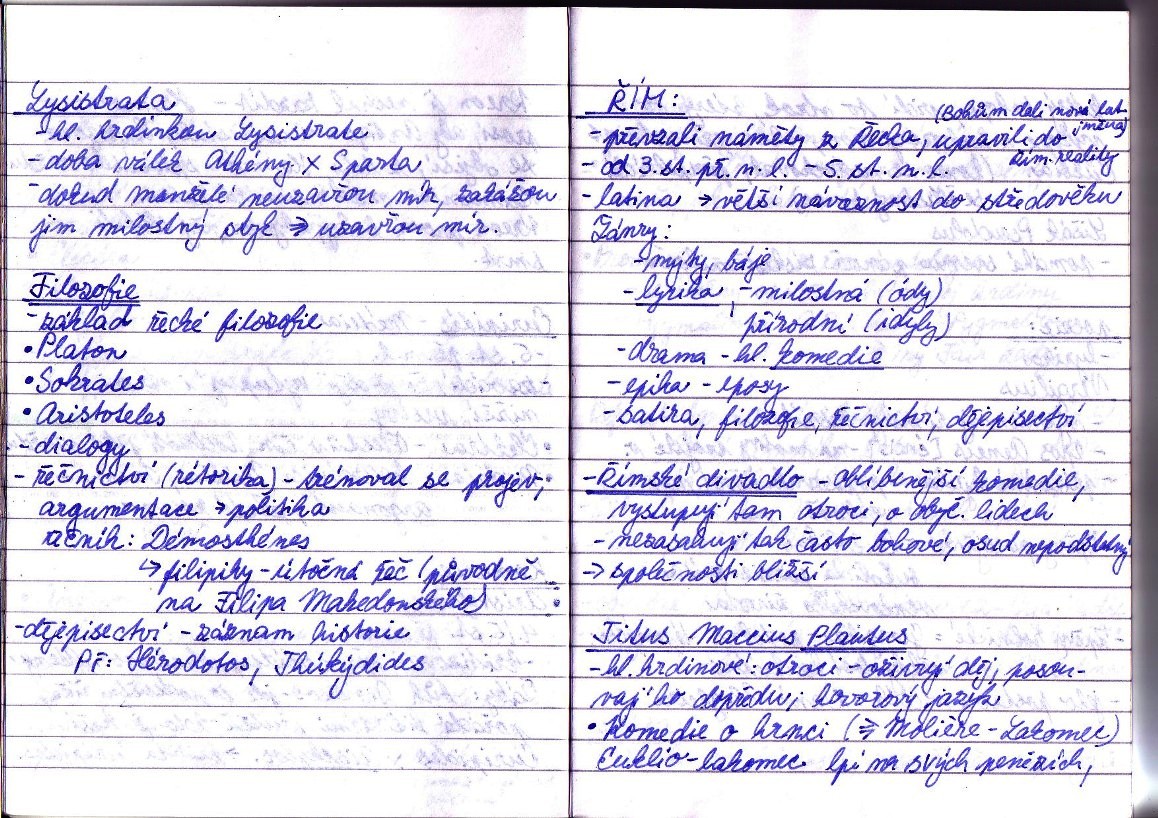 Lysistrata
- hl. hrdinkou Lysistrate
- doba válek Athény x Sparta
- dokud manželé neuzavřou mír, zarážou
jim milostný styk ⇒ uzavřou mír.
Filozofie
- základ řecké filozofie
• Platon
• Sokrates
• Aristoteles
- dialogy
- řečnictví (rétorika) - trénoval se projev,
argumentace → politika
řečník: Démosthénes
↳ filipiky - útočná řeč (původně
na Filipa Makedonského)
- dějepisectví - záznam historie
Př: Hérodotos, Thukýdides
ŘÍM:
(Bohům dali nová lat.
jména)
- převzali náměty z Řecka, upravili do
řím. reality
- od 3. st. př. n. l. - 5. st. n. l.
- latina → větší návaznost do středověku
Žánry:
- mýty, báje
- lyrika, - milostná (ódy)
přírodní (idyly)
- drama - hl. komedie
- epika - eposy
- satira, filozofie, řečnictví, dějepisectví
- Římské divadlo - oblíbenější komedie,
vystupují tam otroci, o obyč. lidech
- nezasahují tak často bohové, osud nepodstatný
→ společnosti bližší
Titus Maccius Plautus
- hl. hrdinové: otroci - oživují děj, posou-
vají ho dopředu; hovorový jazyk
• Komedie o hrnci (⇒ Molière - Lakomec)
Euklio - lakomec lpí na svých penězích,